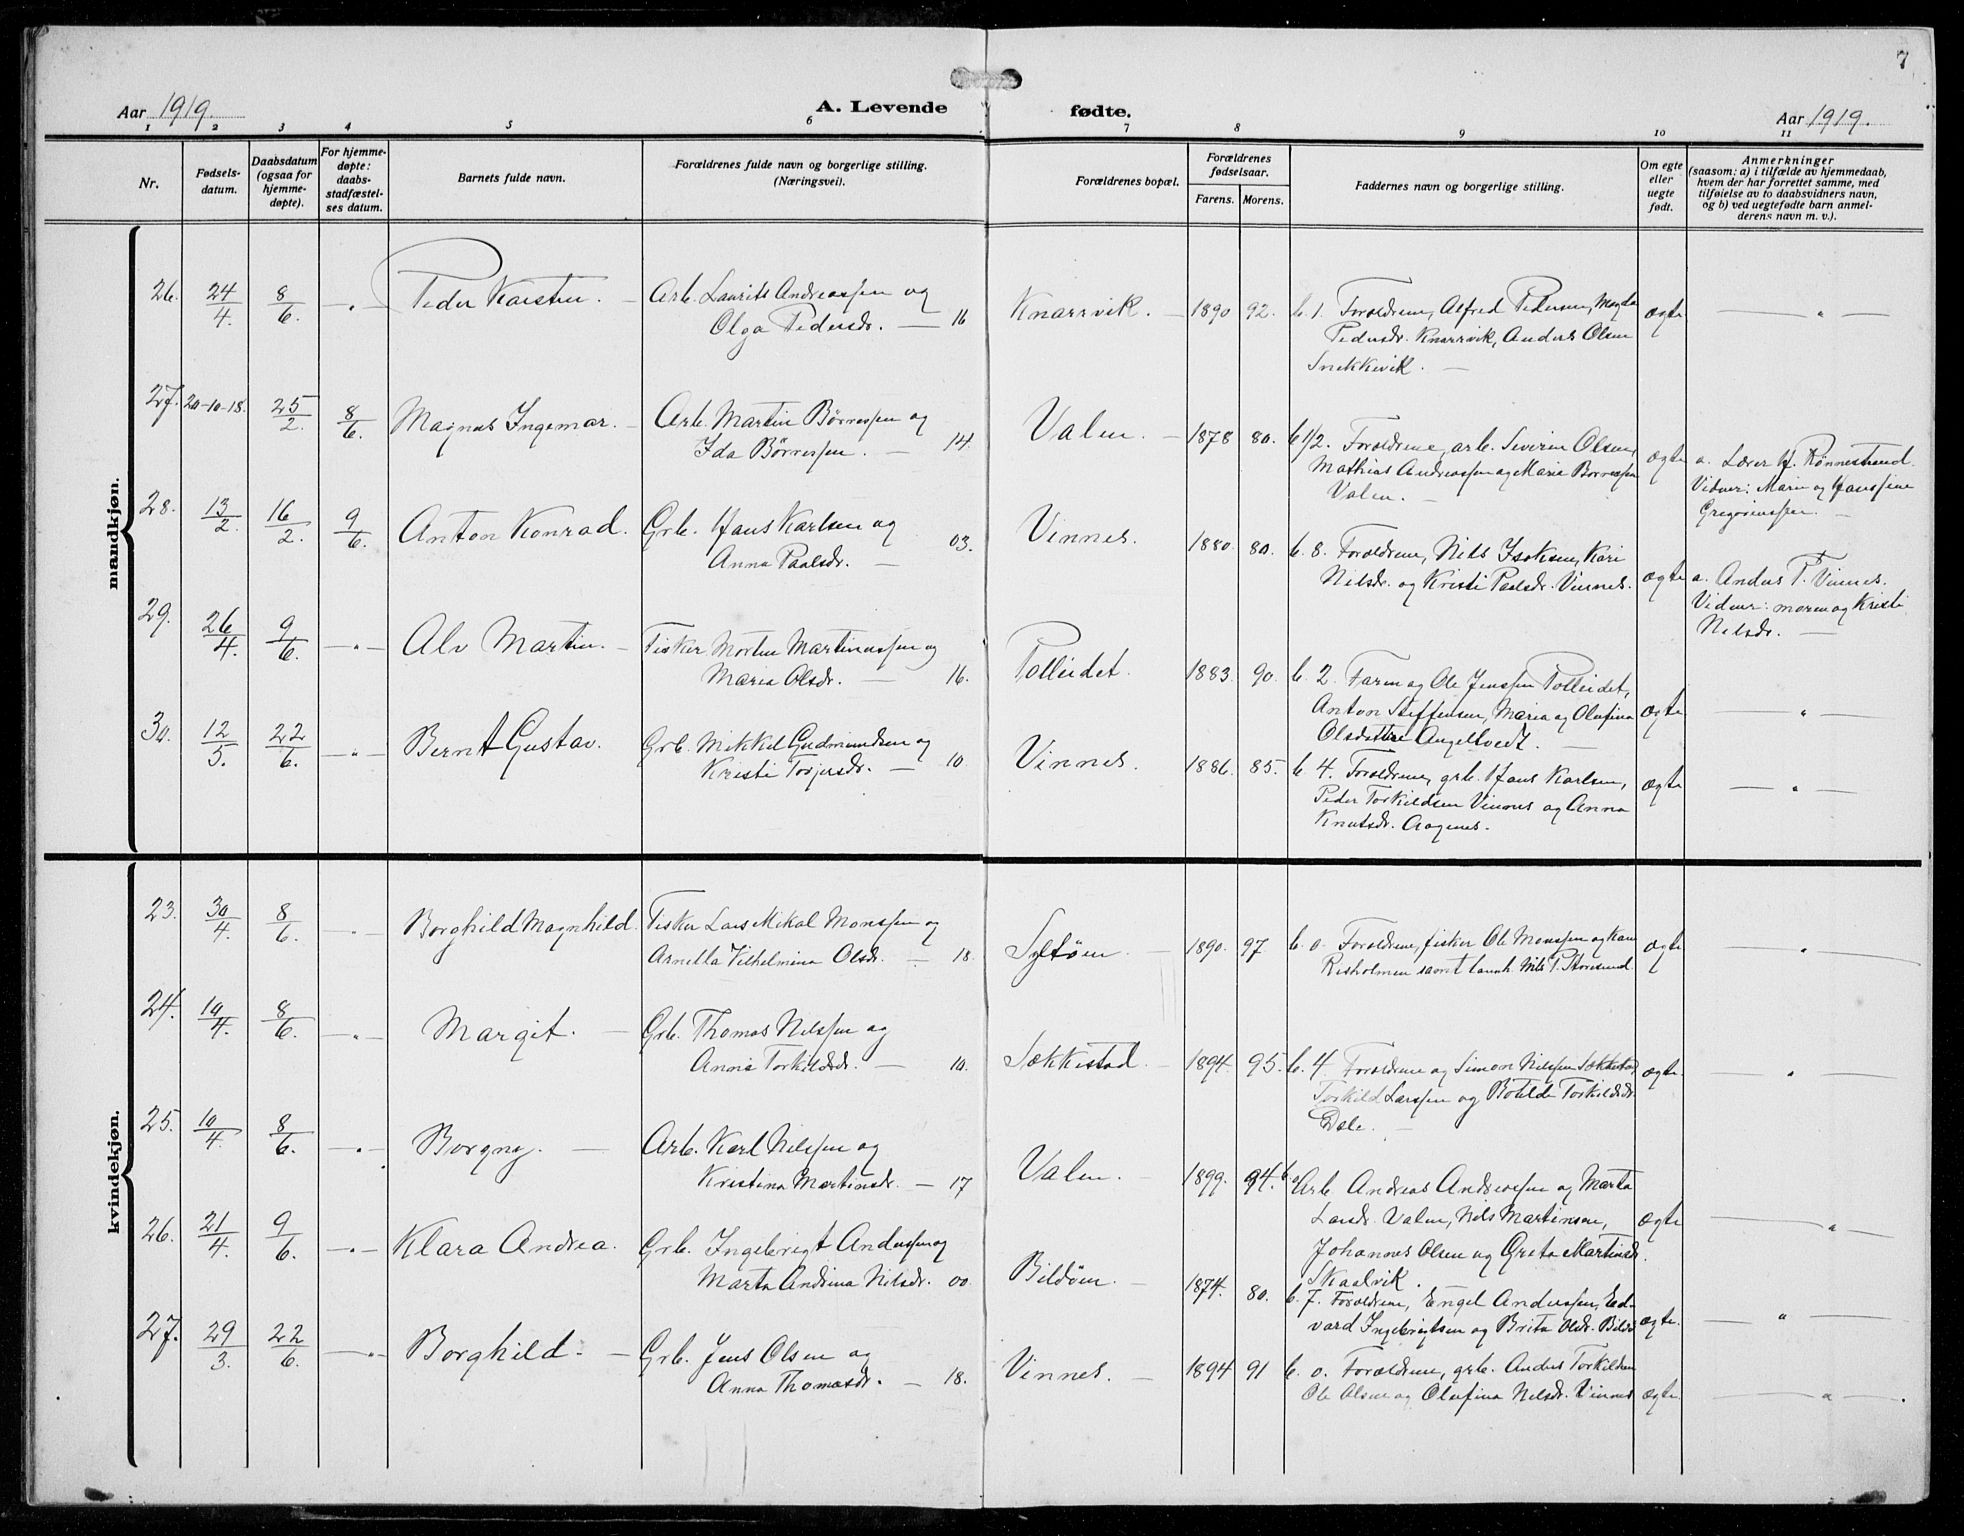 7
Aar 1919.
A. Levende fødte.
Aar 1919.
1 2 3 4 5 6 7 8 9 10 11
Nr.
Fødsels-
datum.
Daabsdatum
(ogsaa for
hjemme-
døpte).
For hjemme-
døpte:
daabs-
stadfæstel-
ses datum.
Barnets fulde navn.
Forældrenes fulde navn og borgerlige stilling.
(Næringsvei).
Forældrenes bopæl.
Forældrenes
fødselsaar.
Farens. Morens.
Faddernes navn og borgerlige stilling.
Om egte
eller
uegte
født.
Anmerkninger
(saasom: a) i tilfælde av hjemmedaab,
hvem der har forrettet samme, med
tilføielse av to daabsvidners navn,
og b) ved uegtefødte barn anmel-
derens navn m. v.).
mandkjøn.
26. 24/4. 8/6. -"- Peder Karsten. Arb. Laurits Andreassen og
Olga Pedersdr. 16
Knarrvik. 1890 92. b. 1. Forældrene, Alfred Pedersen, Magda
Pedersdr. Knarrvik, Anders Olsen
Snekkevik.
ægte "
27. 20-10-18. 25/2. 8/6. Magnus Ingemar. Arb. Martin Børressen og
Ida Børressen. 14.
Valen. 1878 80. b 1/2. Forældrene, arb. Severin Olsen,
Mathias Andreassen og Marie Børressen
Valen.
ægte a. Lærer H. Rønnestrand.
Vidner: Marie og Hanssine
Gregoriussen.
28. 13/2. 16/2. 9/6. Anton Konrad. Grb. Hans Karlsen og
Anna Paalsdr. 03.
Vinnes. 1880. 80. b. 8. Forældrene, Nils Isaksen, Kari
Nilsdr. og Kristi Paalsdr. Vinnes.
ægte a. Anders T. Vinnes.
Vidner: moren og Kristi
Nilsdr.
29. 26/4. 9/6. -"- Alv Martin. Fisker Morten Martinussen og
Maria Olsdr. 16.
Polleidet. 1883. 90. b. 2. Faren og Ole Jenssen Polleidet,
Anton Steffensen, Maria og Olufina
Olsdøttre Angeltvedt.
ægte "
30. 12/5. 22/6. -"- Bernt Gustav. Grb. Mikkel Gudmundsen og
Kristi Torjersdr. 10.
Vinnes. 1886. 85. b. 4. Forældrene, grb. Hans Karlsen,
Peder Torkildsen Vinnes og Anna
Knutsdr. Aagenes.
ægte "
kvindekjøn.
23. 30/4. 8/6. -"- Borghild Magnhild. Fisker Lars Mikal Monssen og
Arnetta Vilhelmina Olsdr. 18.
Syltøen. 1890. 97 b. 0. Forældrene, fisker Ole Monssen og Kari
Risholmen samt landh. Nils P. Storesund.
ægte "
24. 10/4. 8/6. -"- Margit. Grb. Thomas Nilssen og
Anna Torkildsdr. 10.
Sækkestad. 1894. 95. b. 4. Forældrene og Simon Nilssen Sækkestad,
Torkild Larssen og Botilde Torkildsdr.
Dale.
ægte. "
25. 10/4. 8/6. -"- Borgny. Arb. Karl Nilssen og
Kristina Martinsdr. 17
Valen. 1899. 94. b. 0 Arb. Andreas Andreassen og Marta
Larsdr. Valen, Nils Martinsen,
Johannes Olsen og Greta Martinsdr.
Skaalvik.
ægte "
26. 21/4. 9/6. -"- Klara Andrea. Grb. Ingebrigt Anderssen og
Marta Andrina Nilsdr. 00.
Bildøen. 1874. 80. b. 7. Forældrene, Engel Anderssen, Ed-
vard Ingebrigtsen og Brita Olsdr. Bildø
ægte. "
27. 29/3. 22/6. -"- Borghild. Grb. Jens Olsen og
Anna Thomasdr. 18.
Vinnes. 1894 91 b. 0. Forældrene, grb. Anders Torkildsen
Ole Olsen og Olufina Nilsdr. Vinnes
ægte. "